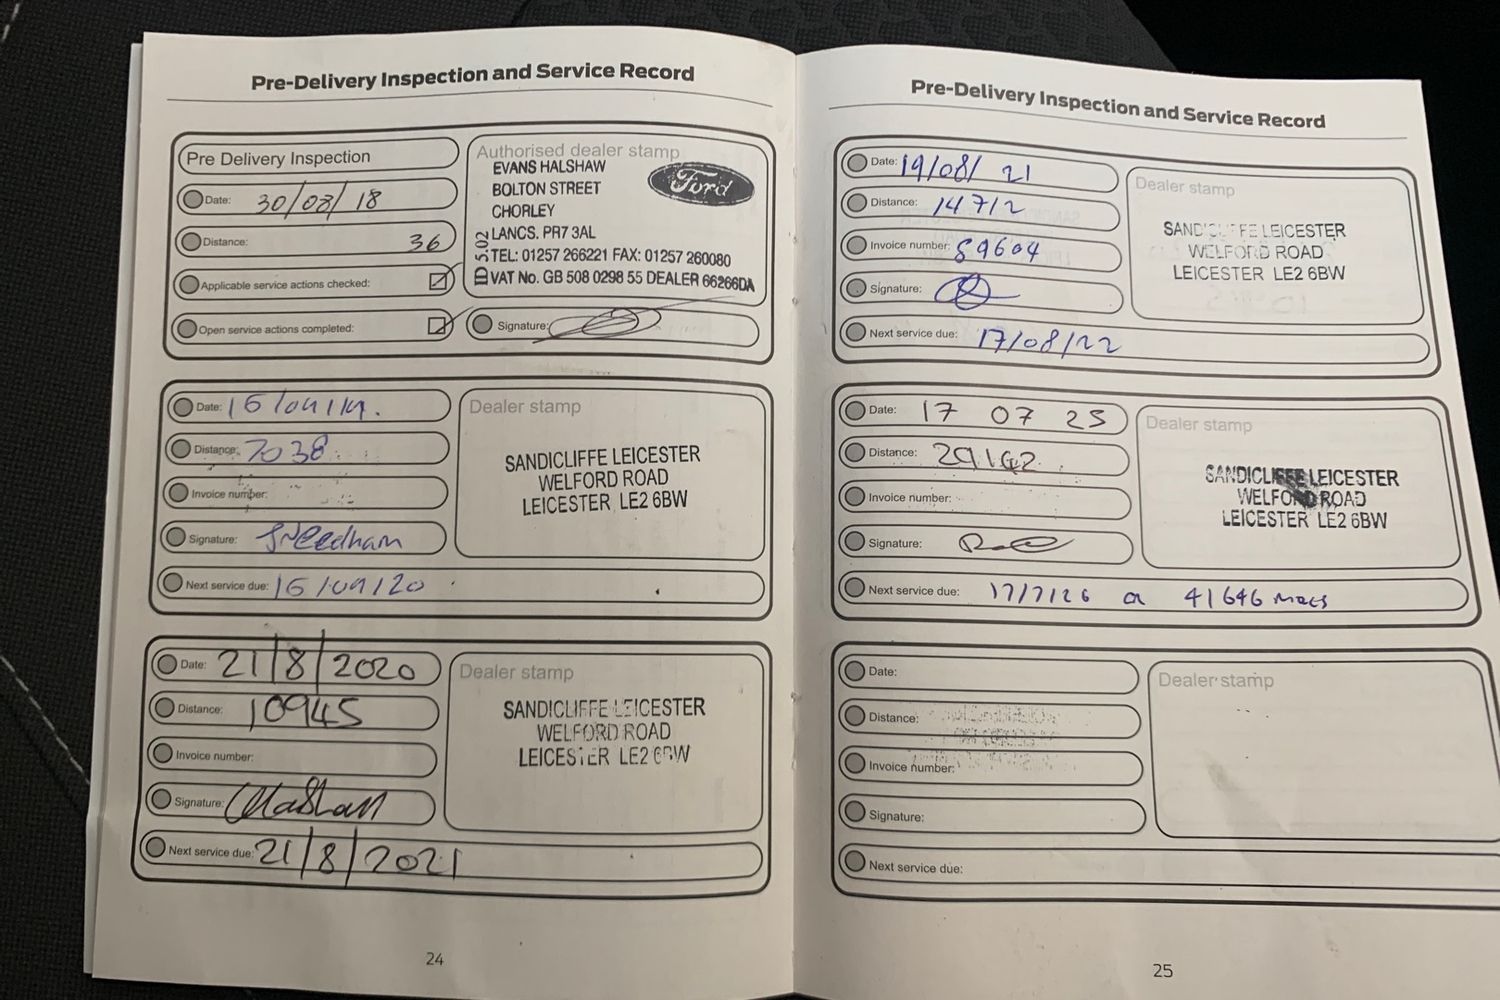 Pre-Delivery Inspection and Service Record
Pre Delivery Inspection
Date: 30/08/18
Distance: 36
Applicable service actions checked:
Open service actions completed:
Authorised dealer stamp
EVANS HALSHAW
BOLTON STREET
CHORLEY
LANCS. PR7 3AL
TEL: 01257 266221 FAX: 01257 260080
VAT No. GB 508 0298 55 DEALER 66266DA
ID 5.02
Ford
Signature:
Date:
Distance: 7038
Invoice number:
Signature:
Next service due:
Dealer stamp
SANDICLIFFE LEICESTER
WELFORD ROAD
LEICESTER LE2 6BW
Date: 21/8/2020
Distance: 10945
Invoice number:
Signature:
Next service due: 21/8/2021
Dealer stamp
SANDICLIFFE LEICESTER
WELFORD ROAD
LEICESTER LE2 6BW
24
Pre-Delivery Inspection and Service Record
Date: 19/08/21
Distance: 14712
Invoice number: 89604
Signature:
Next service due: 17/08/22
Dealer stamp
SANDICLIFFE LEICESTER
WELFORD ROAD
LEICESTER LE2 6BW
Date: 17 07 25
Distance:
Invoice number:
Signature:
Next service due: 17/7/26 or 41646 miles
Dealer stamp
SANDICLIFFE LEICESTER
WELFORD ROAD
LEICESTER LE2 6BW
Date:
Distance:
Invoice number:
Signature:
Next service due:
Dealer stamp
25